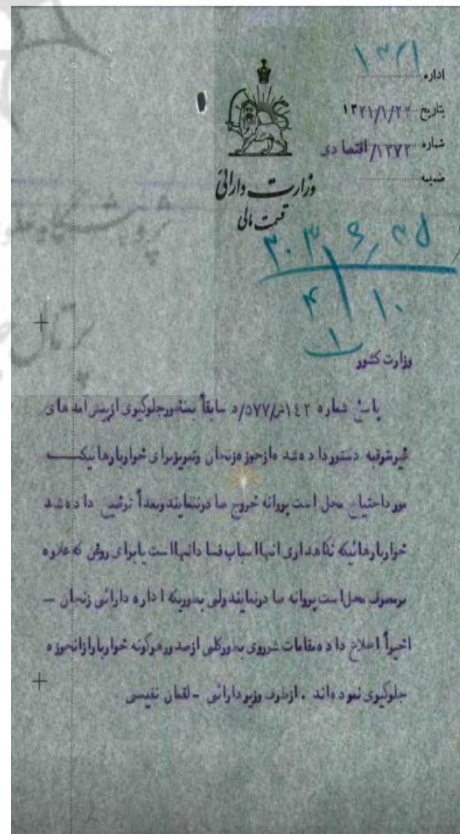 ۱۳۲۱
اداره
تاریخ ۱۳۲۱/۱/۲۲
شماره ۱۳۷۲/اقتصادی
ضمیمه
وزارت دارائی
قسمت مالی
وزارت کشور
پاسخ شماره ۱۴۲ش/۵۷۷/د سابقاً بمنظور جلوگیری از پیش آمدهای
غیرمترقبه دستور داده شد از حوزه زنجان وتبریز برای خواربارهائیکه
مورد احتیاج محل است پروانه خروج صادرننمایند وبعداً توضیح داده شد
خواربارهائیکه نگاهداری آنها اسباب فساد آنها است یا برای روغن که علاوه
برمصرف محل است پروانه صادرنمایند ولی بطوریکه اداره دارائی زنجان –
اخیراً اطلاع داده مقامات شوروی بطورکلی ازصدور هرگونه خواربار ازآنحوزه
جلوگیری نموده اند . ازطرف وزیر دارائی – لقمان نفیسی